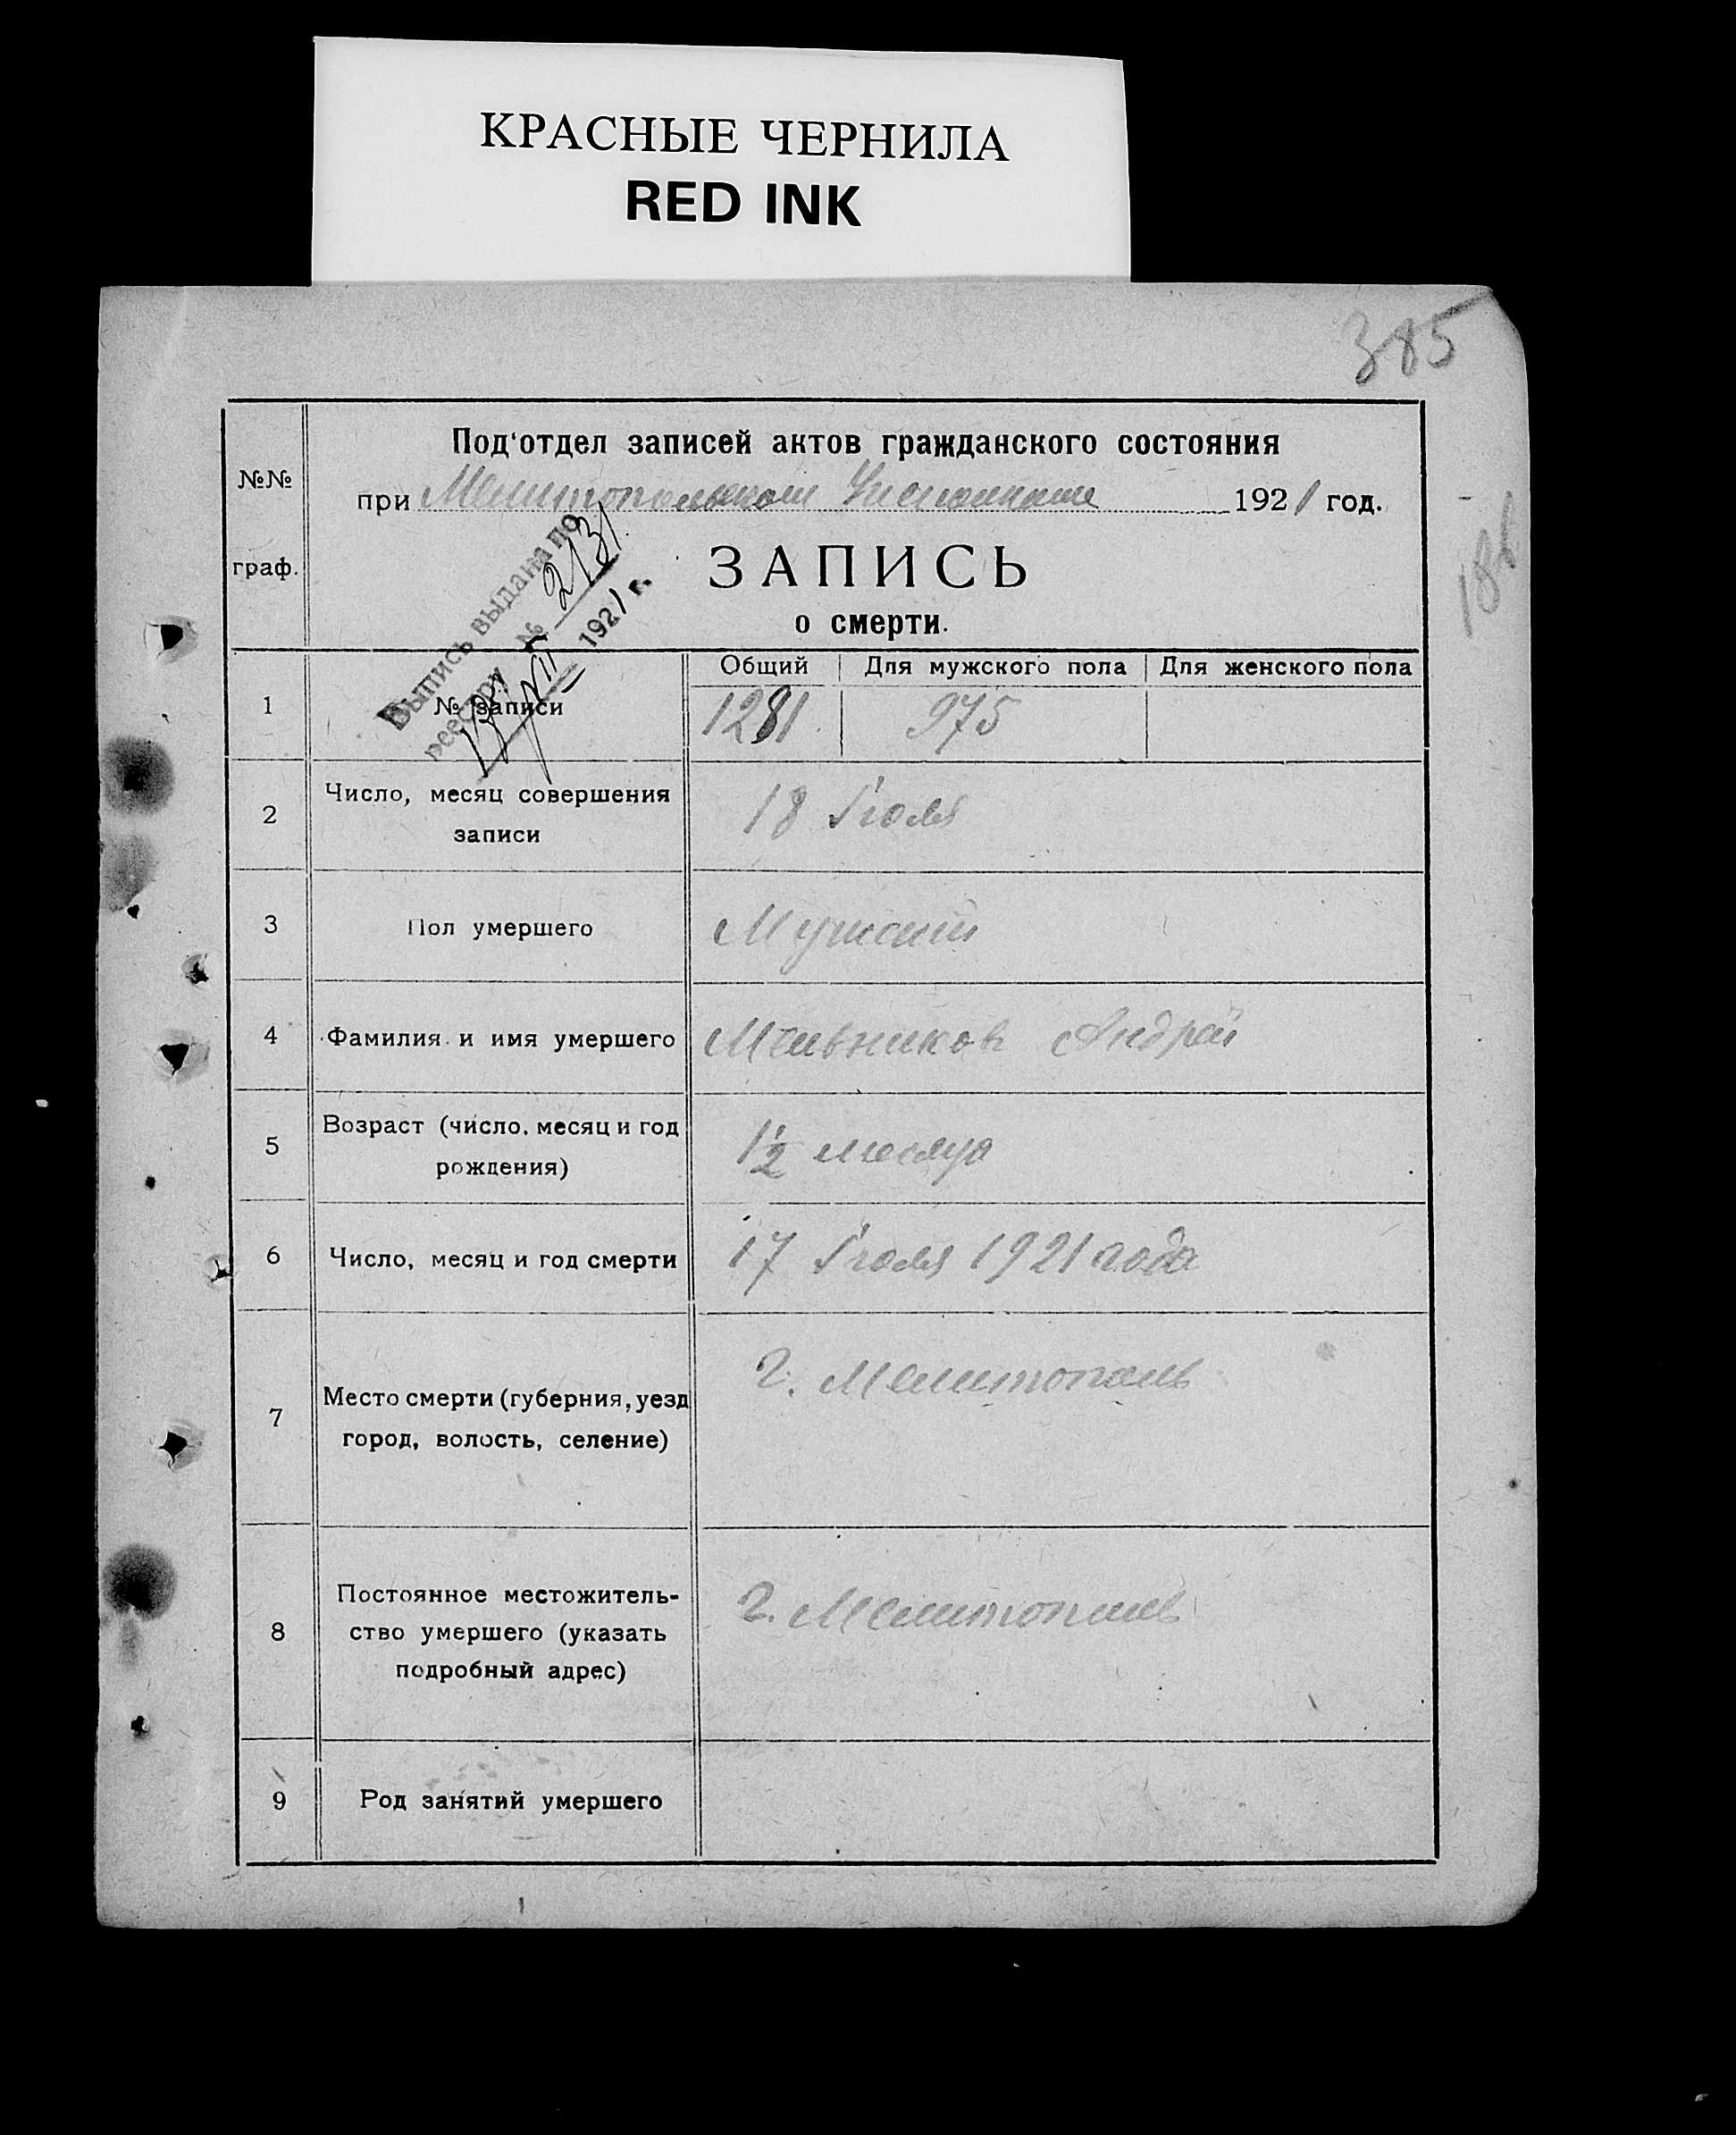 КРАСНЫЕ ЧЕРНИЛА
RED INK
385
№№
граф.
Под'отдел записей актов гражданского состояния
при Мелитопольском 1921 год.
ЗАПИСЬ
о смерти.
Выпись выдана по
реестру № 2131
1921 г.
Общий Для мужского пола Для женского пола
1 № записи 1281 975
2 Число, месяц совершения
записи
18 Іюля
3 Пол умершего Мужской
4 Фамилия и имя умершего Мельников Андрей
5 Возраст (число, месяц и год
рождения)
1½ месяца
6 Число, месяц и год смерти 17 Іюля 1921 года
7 Место смерти (губерния, уезд
город, волость, селение)
г. Мелитополь
8 Постоянное местожитель-
ство умершего (указать
подробный адрес)
г. Мелитополь
9 Род занятий умершего